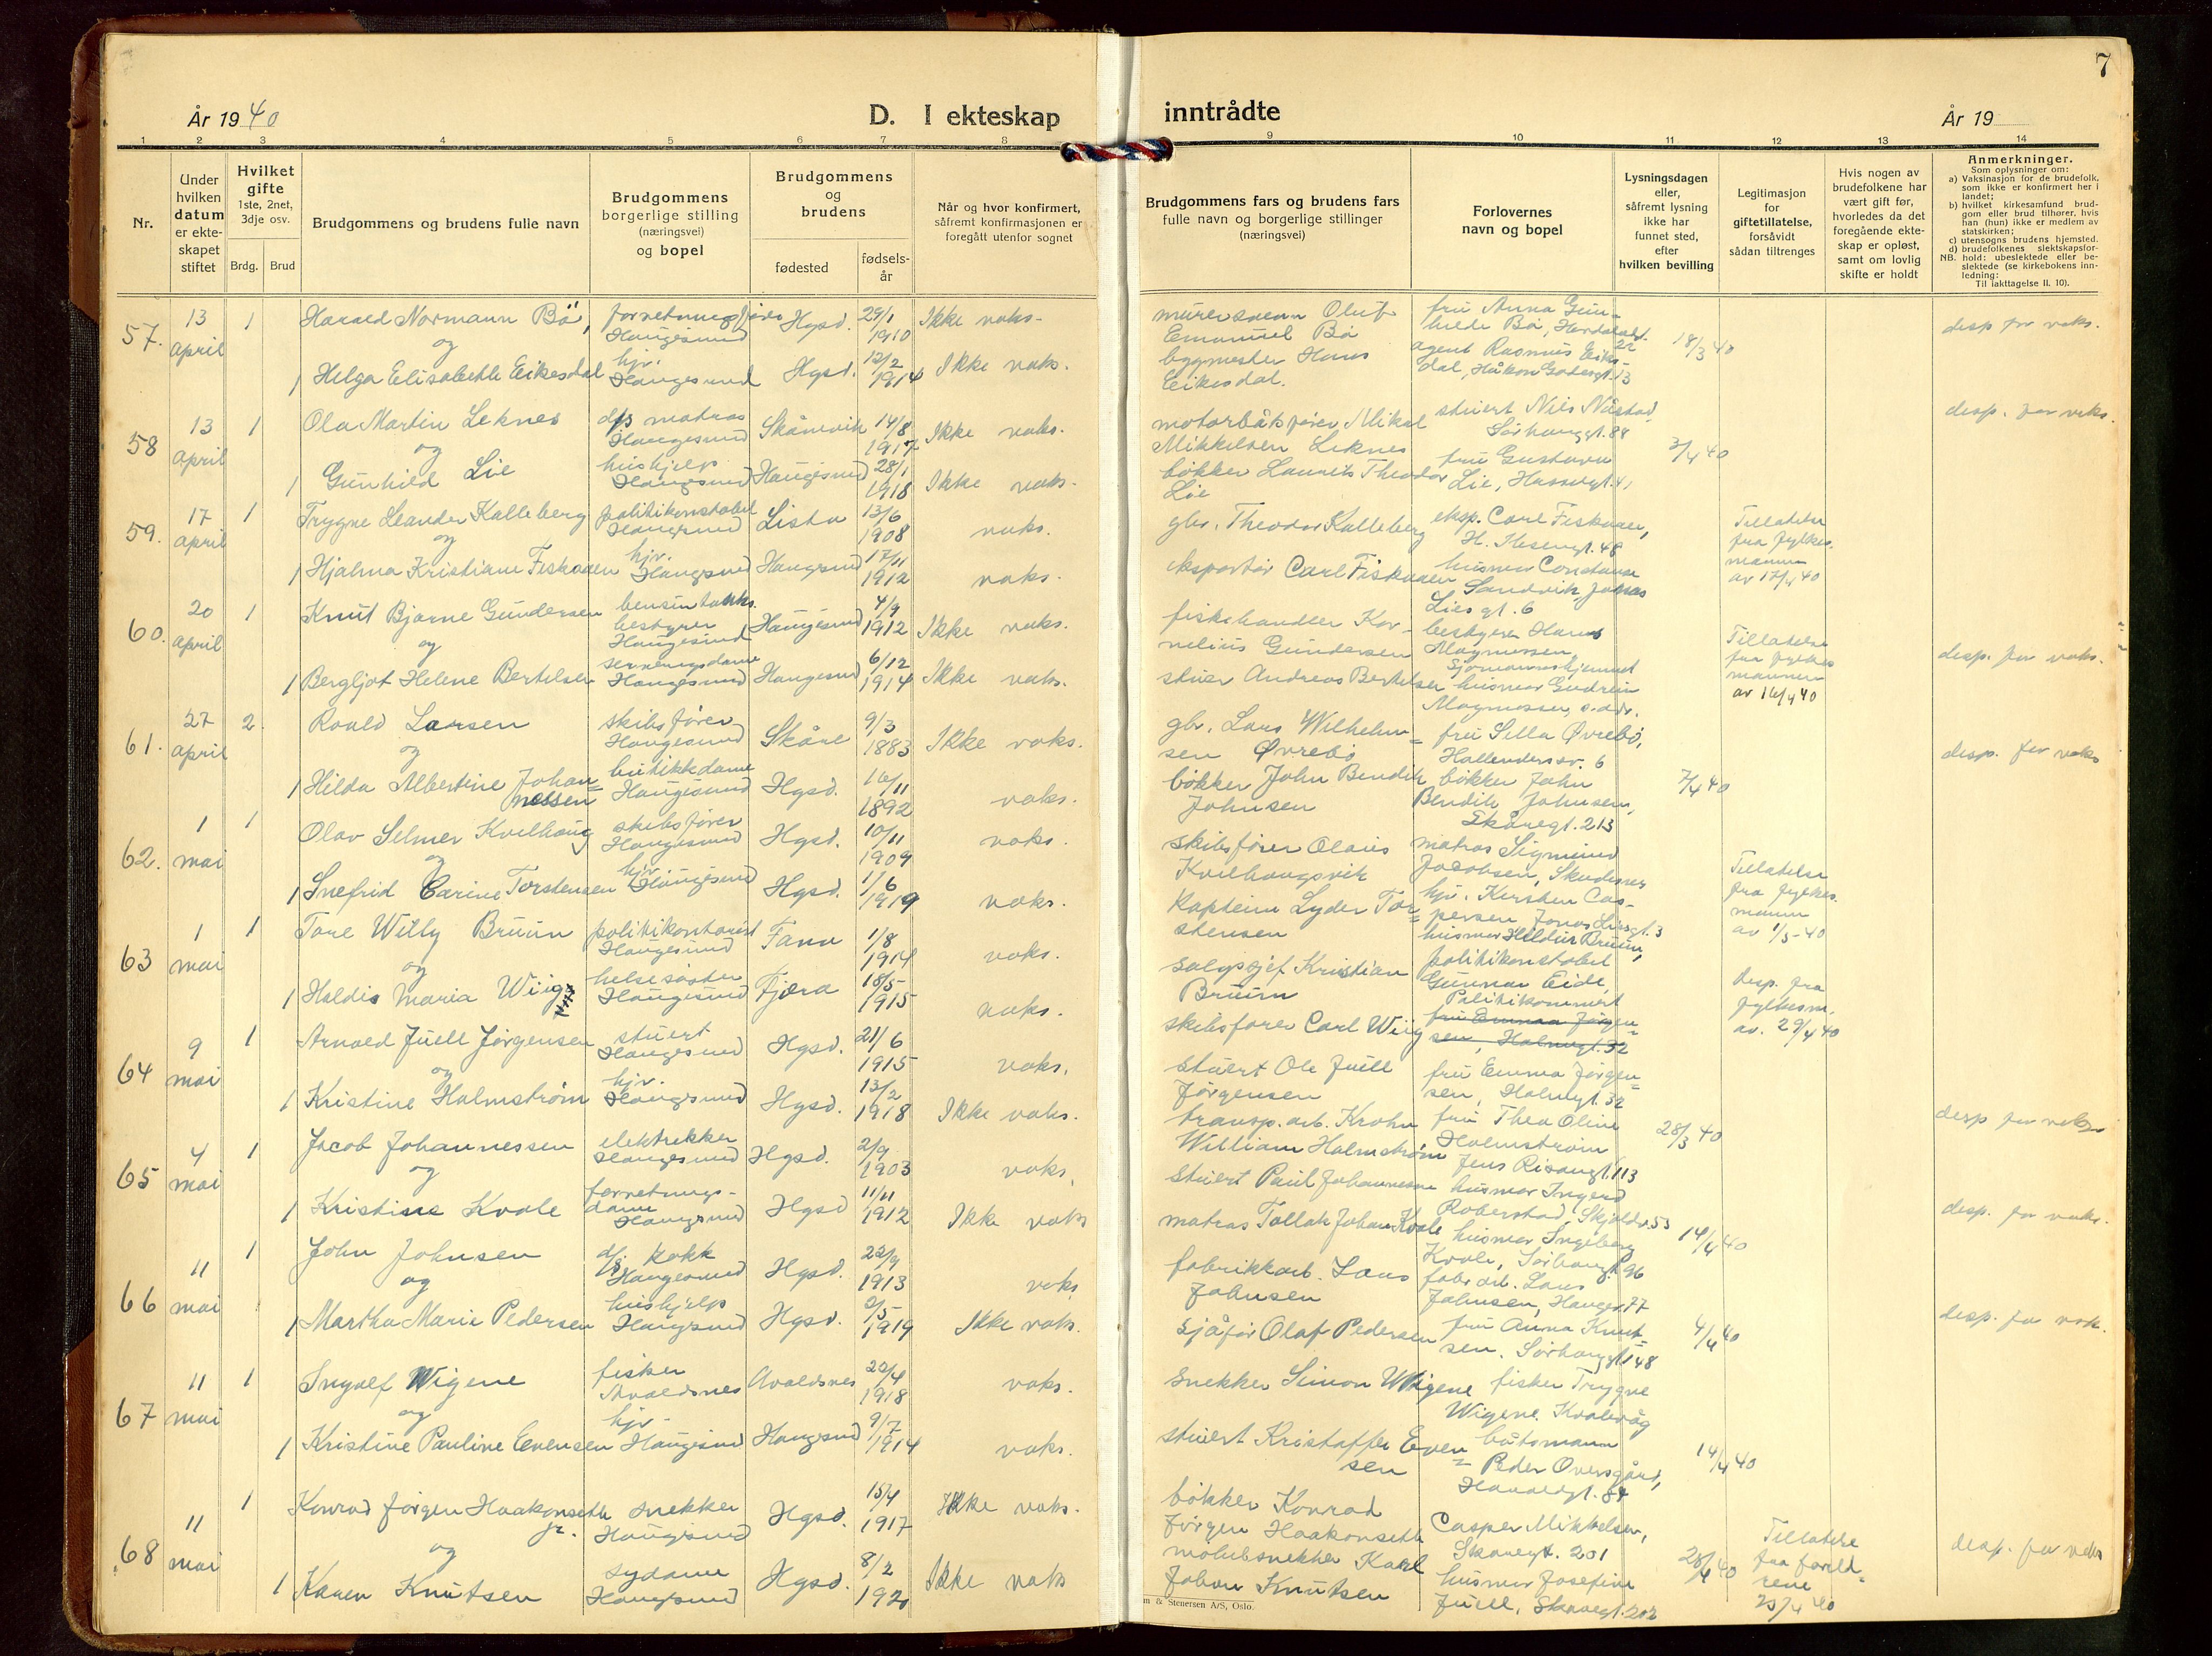 7
År 1940
D. I ekteskap
inntrådte
År 19
1 2 3 4 5 6 7 8 9 10 11 12 13 14
Nr.
Under hvilken datum er ekteskapet stiftet
Hvilket gifte
1ste, 2net, 3dje osv.
Brdg. Brud
Brudgommens og brudens fulle navn
Brudgommens borgerlige stilling
(næringsvei)
og bopel
Brudgommens og brudens
fødested
fødselsår
Når og hvor konfirmert,
såfremt konfirmasjonen er
foregått utenfor sognet
Brudgommens fars og brudens fars
fulle navn og borgerlige stillinger
(næringsvei)
Forlovernes
navn og bopel
Lysningsdagen
eller,
såfremt lysning
ikke har
funnet sted,
efter
hvilken bevilling
Legitimasjon
for
giftetillatelse,
forsåvidt
sådan tiltrenges
Hvis nogen av
brudefolkene har
vært gift før,
hvorledes da det
foregående ekte-
skap er opløst,
samt om lovlig
skifte er holdt
Anmerkninger.
Som oplysninger om:
a) Vaksinasjon for de brudefolk,
som ikke er konfirmert her i
landet;
b) hvilket kirkesamfund brud-
gom eller brud tilhører, hvis
han (hun) ikke er medlem av
statskirken;
c) utensogns brudens hjemsted.
d) brudefolkenes slektskapsfor-
hold: ubeslektede eller be-
slektede (se kirkebokens inn-
ledning:
NB.
Til iakttagelse II. 10).
57. 13 april 1 Harald Normann Bö, forretningsfører Haugesund Hgsd. 29/1 1910 Ikke vaks.
og
1 Helga Elisabeth Eikesdal hjv. Haugesund Hgsd. 12/2 1914 Ikke vaks.
murersvenn Oluf Emanuel Bö
byggmester Hans Eikesdal.
fru Anna Gunhilde Bö, 22
agent Rasmus Eikesdal, Håkon Godesgt. 13
18/3 40
desp for vaks.
58 13 april 1 Ola Martin Leknes d/s matros Haugesund Skånevik 14/8 1917 Ikke vaks.
og
1 Gunhild Lie hushjelp Haugesund Haugesund 28/1 1918 Ikke vaks.
motorbåtfører Mikal Mikkelsen Leknes
bøkker Laurits Theodor Lie
stuert Nils Nåstad, Sørhauggt. 88
fru Gustava Lie, 41
3/4 40
desp. for vaks.
59. 17 april 1 Trygve Leander Kalleberg politikonstabel Haugesund Lista 13/6 1908 vaks.
og
1 Hjalma Kristiane Fiskaaen hjv. Haugesund Haugesund 17/11 1912 vaks.
gbr. Theodor Kalleberg
eksportør Carl Fiskaaen
eksp. Carl Fiskaaen, H. Ibsensgt. 48
husmor Constance Sandvik, Jonas Lies gt. 6
Tillatelse fra fylkesmann av 17/4 40
60. 20 april 1 Knut Bjarne Gundersen bensintankbestyrer Haugesund Haugesund 4/9 1912 Ikke vaks.
og
1 Bergljot Helene Bertelsen serveringsdame Haugesund Haugesund 6/12 1914 Ikke vaks.
fiskehandler Kornelius Gundersen
stuer Andreas Bertelsen
bestyrer Hans Magnussen, Sjømannshjemmet
husmor Gudrun Magnussen, s.adr.
Tillatelse fra fylkesmannen av 16/4 40
desp. for vaks.
61. 27 april 2 Roald Larsen skibsfører Haugesund Skåre 9/3 1883 Ikke vaks.
og
1 Hilda Albertine Johannessen butikkdame Haugesund Hgsd. 16/11 1892 vaks.
gbr. Lars Wilhelmsen Øvrebö
bøkker John Bendik Johnsen
fru Silla Øvrebö, 6
bøkker John Bendik Johnsen, Skåregt. 213
7/4 40
desp. for vaks
62. 1 mai 1 Olav Selmer Kvilhaug skibsfører Haugesund Hgsd. 10/11 1909 vaks.
og
1 Snefrid Carine Torstensen hjv. Haugesund Hgsd. 1/6 1919 vaks.
skibsfører Olaus Kvilhaugsvik
Kaptein Lyder Torstensen
matros Sigmund Jacobsen, Skudesnes
hjv. Kirsten Caspersen, Jonas Liesgt. 3
Tillatelse fra fylkesmann av 1/5-40
63 1 mai 1 Tore Willy Bruun politikontorist Haugesund Fana 1/8 1914 vaks.
og
1 Haldis Maria Wiig helsesøster Haugesund Fjæra 18/5- 1915 vaks.
salgssjef Kristian Bruun
skibsfører Carl Wiig
husmor Hildur Bruun,
politikonstabel Gunnar Eide, Politikammeret
fru Emma Jørgensen, Holmegt. 32
Desp. fra fylkesm. av. 29/4 40
64 9 mai 1 Arnold Juell Jörgensen stuert Haugesund Hgsd. 21/6 1915 vaks.
og
1 Kristine Holmstrøm hjv. Haugesund Hgsd. 13/2 1918 Ikke vaks.
stuert Ole Juell Jørgensen
transp. arb. Krohn William Holmstrøm
fru Emma Jørgensen, Holmegt. 32
fru Thea Oline Holmstrøm Jens Risøengt. 113
28/3 40
desp for vaks
65 4 mai 1 Jacob Johannessen elektrikker Haugesund Hgsd. 2/9 1903 vaks.
og
1 Kristine Kvale forretningsdame Haugesund Hgsd 11/11 1912 Ikke vaks
stuert Paul Johannesen
matros Tollak Johan Kvale
husmor Ingerd Roberstad, 53
husmor Ingeborg Kvale, Sørhauggt. 96
14/4 40
desp. for vaks.
66 11 mai 1 John Johnsen d/s kokk Haugesund Hgsd. 22/9 1913 vaks
og
1 Martha Marie Pedersen hushjelp Haugesund Hgsd. 1919 Ikke vaks.
fabrikkarb. Lars Johnsen
sjåfør Olaf Pedersen
fabr. arb. Lars Johnsen, 77
fru Anna Knutsen. Sørhauggt. 148
4/4 40
desp. for vak.
67 11 mai 1 Ingolf Wigene fisker Avaldsnes Avaldsnes 22/4 1918 vaks.
og
1 Kristine Pauline Evensen hjv. Haugesund Haugesund 9/7 1914 vaks.
snekker Simon Wigene
stuert Kristoffer Evensen
fisker Trygve Wigene. Kvalavåg
båtsmann Peder Oversgård,
14/4 40
68 11 mai 1 Konrad Jørgen Haakonseth jr. snekker Haugesund Hgsd. 15/4 1917 Ikke vaks.
og
1 Karen Knutsen sydame Haugesund Hgsd. 8/2 1920 Ikke vaks
bøkker Konrad Jørgen Haakonseth
møbelsnekker Karl Johan Knutsen
Casper Mikkelsen, Skåregt. 201
husmor Josefine Juell, Skåregt. 202
28/4 40
Tillatelse fra foreldrene 25/4 40
desp. for vaks
m & Stenersen A/S, Oslo.